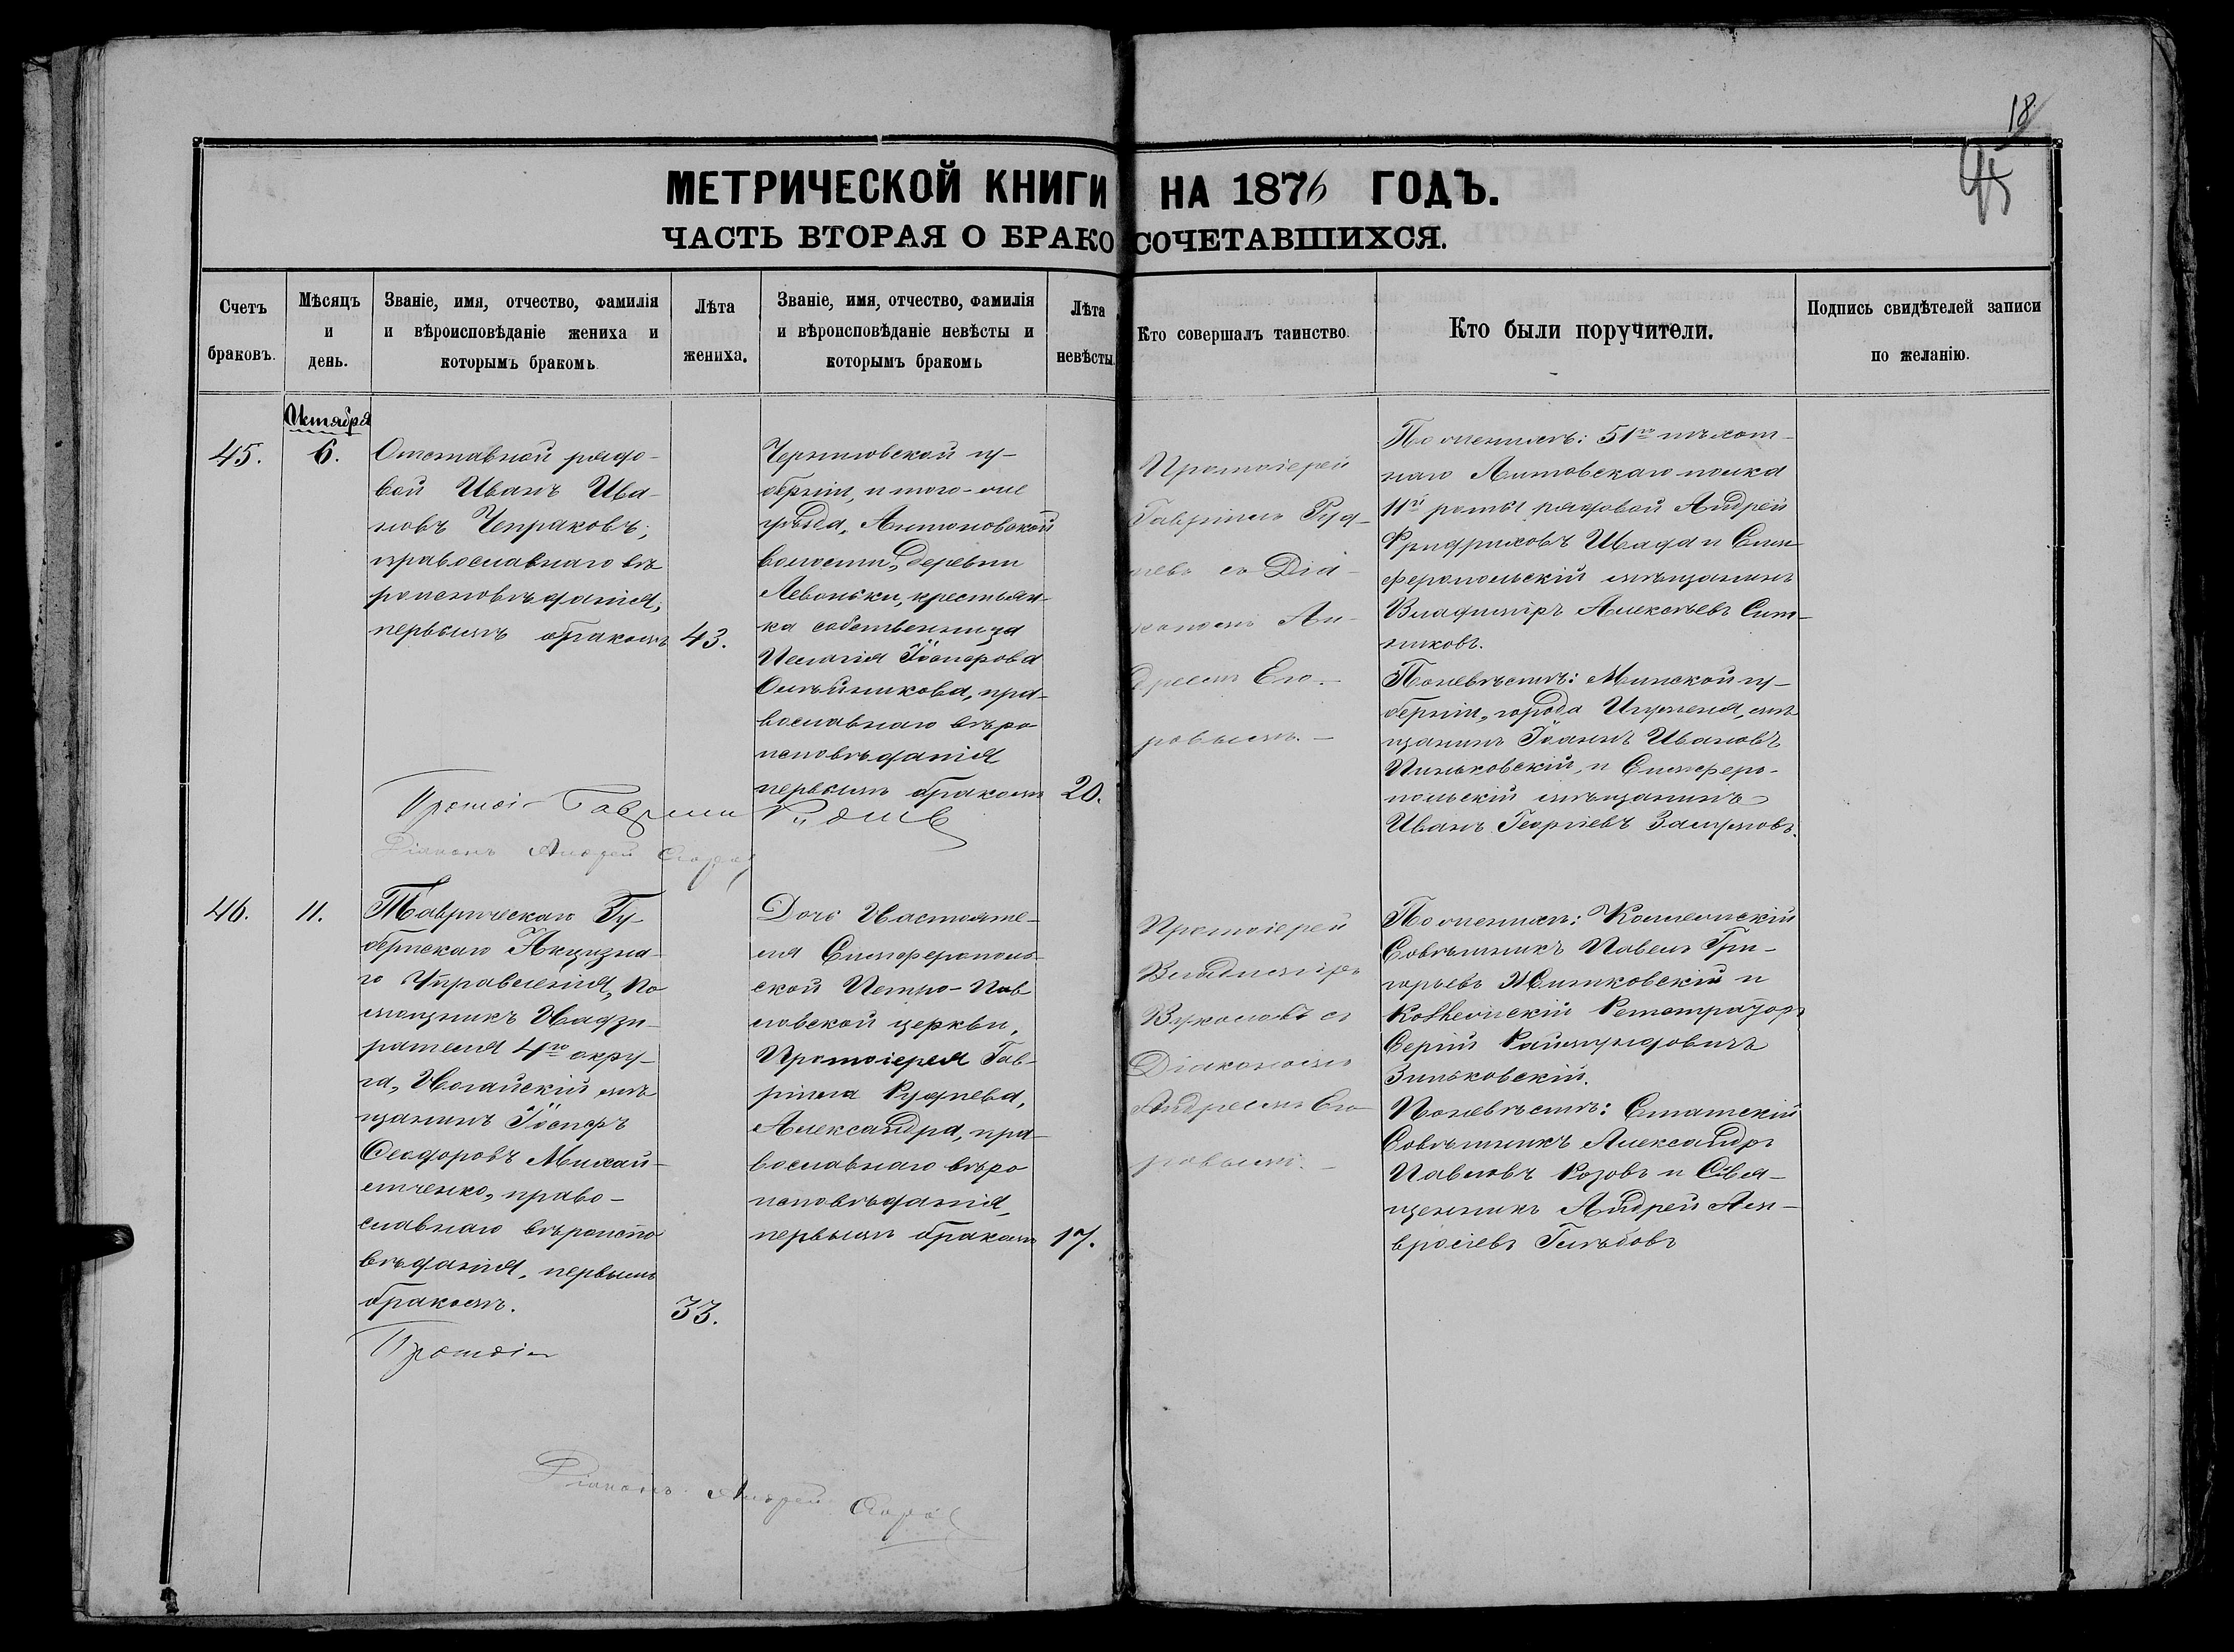 18
45
МЕТРИЧЕСКОЙ КНИГИ НА 1876 ГОДЪ.
ЧАСТЬ ВТОРАЯ О БРАКОСОЧЕТАВШИХСЯ.
Счетъ браковъ.
Мѣсяцъ и день.
Званіе, имя, отчество, фамилія
и вѣроисповѣданіе жениха и
которымъ бракомъ
Лѣта
жениха.
Званіе, имя, отчество, фамилія
и вѣроисповѣданіе невѣсты и
которымъ бракомъ
Лѣта
невѣсты.
Кто совершалъ таинство.
Кто были поручители.
Подпись свидѣтелей записи
по желанію.
Октября
45.
6.
Отставной рядо-
вой Иванъ Ива-
новъ Чепраковъ,
православнаго вѣ
роисповѣданія,
первымъ бракомъ
43.
Черниговской гу-
берніи, и того-же
уѣзда, Антоновской
волости, деревни
Левоньки, крестьян-
ка собственница
Пелагія Іосифова
Олѣйникова, пра-
вославнаго вѣро
исповѣданія
первымъ бракомъ
20.
Протоіерей
Гавріилъ Руд-
невъ съ Діа-
кономъ Ан-
дреемъ Его-
ровымъ. –
По женихѣ: 51го пѣхот-
наго Литовскаго полка
11й роты рядовой Андрей
Фридриховъ Швада и Сим-
феропольскій мѣщанинъ
Владиміръ Алексѣевъ Сит-
никовъ.
По невѣстѣ: Минской гу-
берніи, города Игумена, мѣ
щанинъ Іоаннъ Ивановъ
Пиньковскій, и Симферо-
польскій мѣщанинъ
Иванъ Георгіевъ
Протоі Гавриил Руднев
Діаконъ Андрей Егоров
46.
11.
Таврическаго Гу-
бернскаго Акцизна-
го Управленія, По
мощникъ Надзи-
рателя 4го окру-
га, Ногайскій мѣ
щанинъ Іосифъ
Ѳеодоровъ Михай-
личенко, право-
славнаго вѣроиспо
вѣданія, первымъ
бракомъ.
33.
Дочь Настояте-
ля Симферополь-
ской Петро-Пав
ловской церкви,
Протоіерея Гав-
ріила Руднева,
Александра, пра-
вославнаго вѣро
исповѣданія,
первымъ бракомъ
17.
Протоіерей
Владиміръ
Вуколовъ съ
Діакономъ
Андреемъ Его
ровымъ. –
По женихѣ: Коллежскій
Совѣтникъ Павелъ Гри-
горьевъ Жилковскій и
Коллежскій Регистраторъ
Сергій Раймундовичъ
Зиньковскій.
По невѣстѣ: Статскій
Совѣтникъ Александръ
Павловъ Розовъ и Свя-
щенникъ Андрей Ам-
вросіевъ Глѣбовъ
Протоі
Діаконъ Андрей Егоров